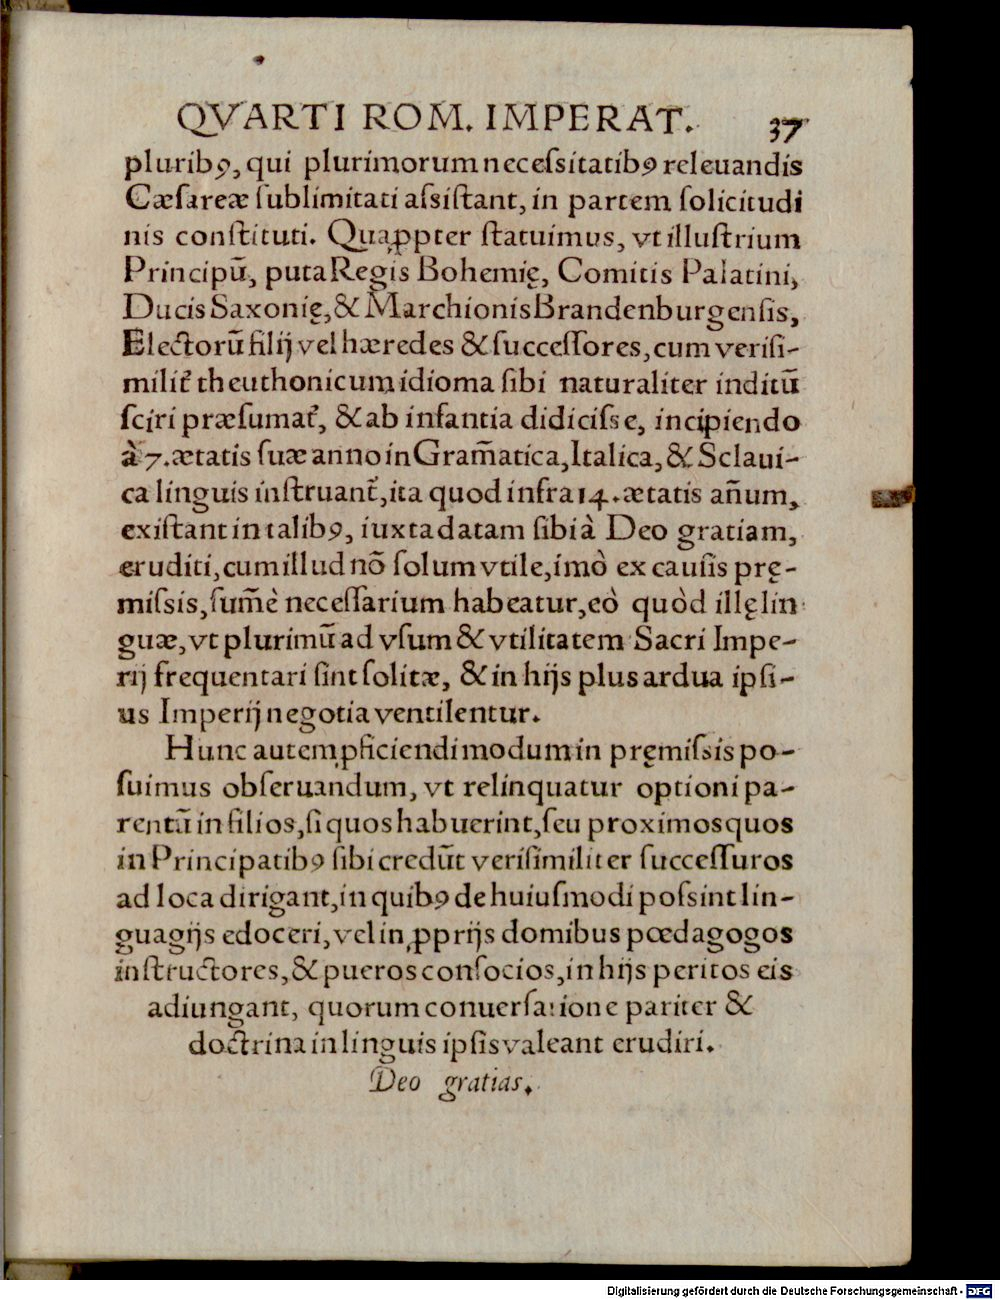 QVARTI ROM. IMPERAT. 37
pluribꝰ, qui plurimorum neceſsitatibꝰ releuandis
Cæſareæ ſublimitati aſsiſtant, in partem ſolicitudi
nis conſtituti. Quaꝓpter ſtatuimus, vt illuſtrium
Principũ, puta Regis Bohemię, Comitis Palatini,
Ducis Saxonię, & Marchionis Brandenburgenſis,
Electorũ filij vel hæredes & ſucceſſores, cum veriſi-
milit᷑ theuthonicum idioma ſibi naturaliter inditũ
ſciri præſumat᷑, & ab infantia didiciſse, incipiendo
à 7. ætatis ſuæ anno in Gram̃atica, Italica, & Sclaui-
ca linguis inſtruant᷑, ita quod infra 14. ætatis añum,
exiſtant in talibꝰ, iuxta datam ſibi à Deo gratiam,
eruditi, cum illud nõ ſolum vtile, imò ex cauſis prę-
miſsis, ſum̃è neceſſarium habeatur, eò quòd illę lin
guæ, vt plurimũ ad vſum & vtilitatem Sacri Impe-
rij frequentari ſint ſolitæ, & in hijs plus ardua ipſi-
us Imperij negotia ventilentur.
Hunc autem ꝓficiendi modum in pręmiſsis po-
ſuimus obſeruandum, vt relinquatur optioni pa-
rentũ in filios, ſi quos habuerint, ſeu proximos quos
in Principatibꝰ ſibi credũt veriſimiliter ſucceſſuros
ad loca dirigant, in quibꝰ de huiuſmodi poſsint lin-
guagijs edoceri, vel in ꝓprijs domibus pœdagogos
inſtructores, & pueros conſocios, in hijs peritos eis
adiungant, quorum conuerſatione pariter &
doctrina in linguis ipſis valeant erudiri.
Deo gratias.
Digitalisierung gefördert durch die Deutsche Forschungsgemeinschaft - DFG